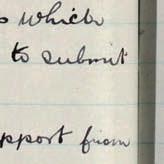 which
to submit
pport from